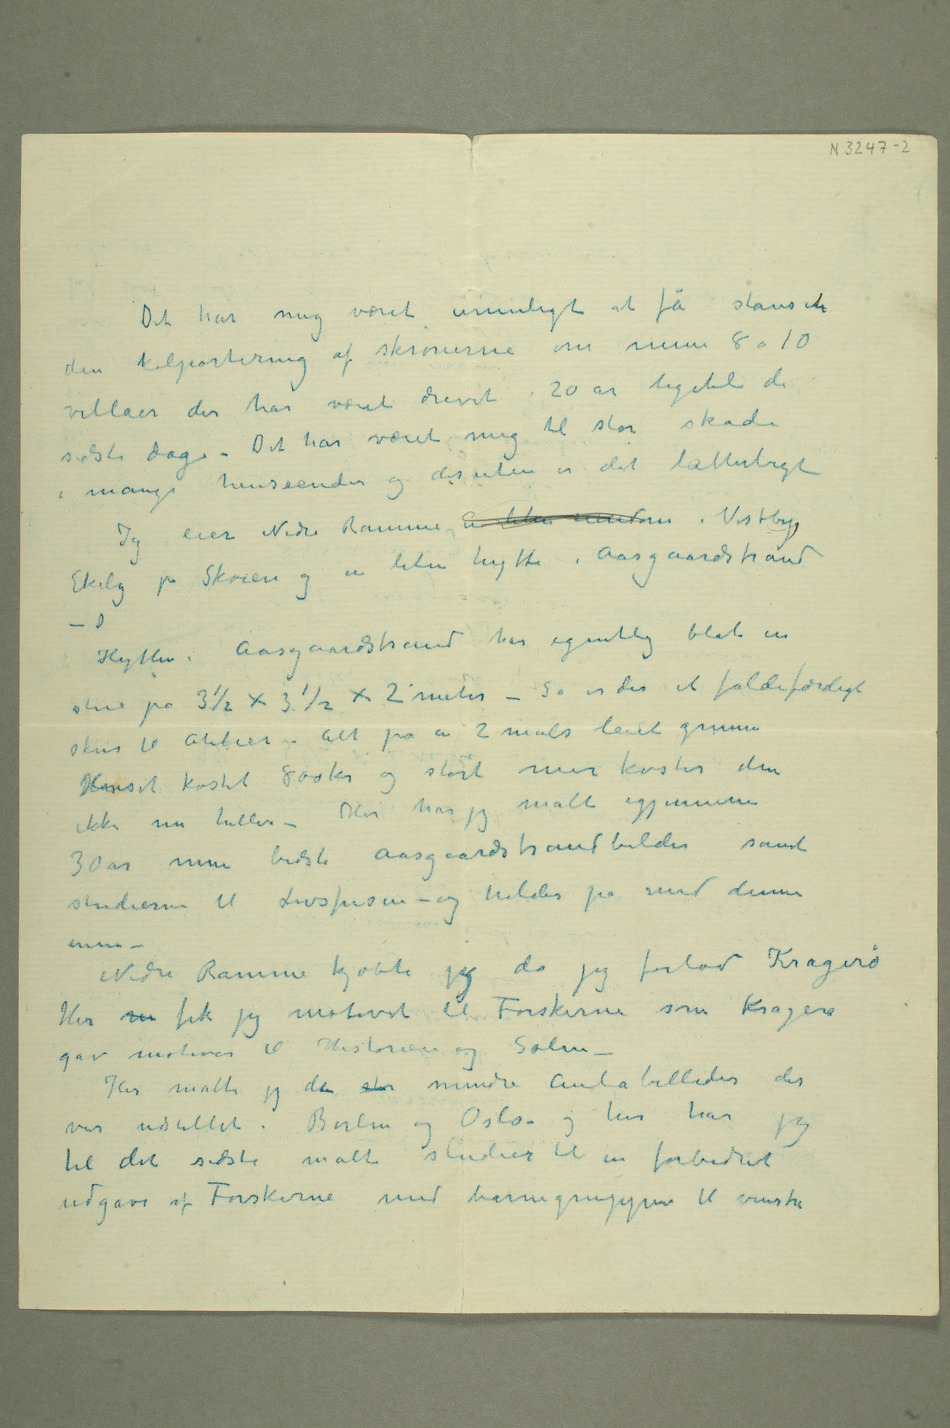 N 3247-2
Det har mig været umuligt at få stanset
den kolportering af skrønerne om mine 8 a 10
villaer der har været drevet i 20 år ligetil de
sidste dage – Det har været mig til stor skade
i mange henseender og desuten er det latterligt
Jeg eier Nedre Ramme, en liten eiendom i Vestby,
Ekely på Skøien og en liten hytte i Aasgaardstrand
–
Hytten i Aasgaardstrand har egentlig blot en
stue på 3½ × 3½ × 2 meter – Så er der et faldefærdigt
skur til Atelier – Alt på en 2 måls leiet grund
Huset kostet 800 kr og stort mer koster den
ikke nu heller – Her har jeg malt igjennem
30 år mine bedste Aasgaardstrandbilleder samt
studierne til Livsfrisen – og holder på med denne
ennu –
Nedre Ramme kjøbte jeg da jeg forlod Kragerø
Her fik jeg motivet til Forskerne som Kragerø
gav motiver til Historien og Solen –
Her malte jeg de mindre Aulabilleder der
var udstillet i Berlin og Oslo og her har jeg
til det sidste malt studier til en forbedret
udgave af Forskerne med barnegruppen til venstre